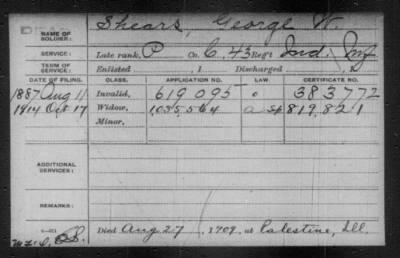 DEAD
NAME OF SOLDIER: Shears, George W.
SERVICE: Late rank, P Co. C, 43 Reg't Ind. Inf
TERM OF SERVICE: Enlisted , 1 Discharged
DATE OF FILING. CLASS. APPLICATION NO. CERTIFICATE NO.
1887 Aug 11 Invalid, 619095 383772
1914 Oct 17 Widow, 1,035,564 819,821
Minor,
ADDITIONAL SERVICES:
REMARKS:
Died Aug 27, 1909, at Palestine, Ill.